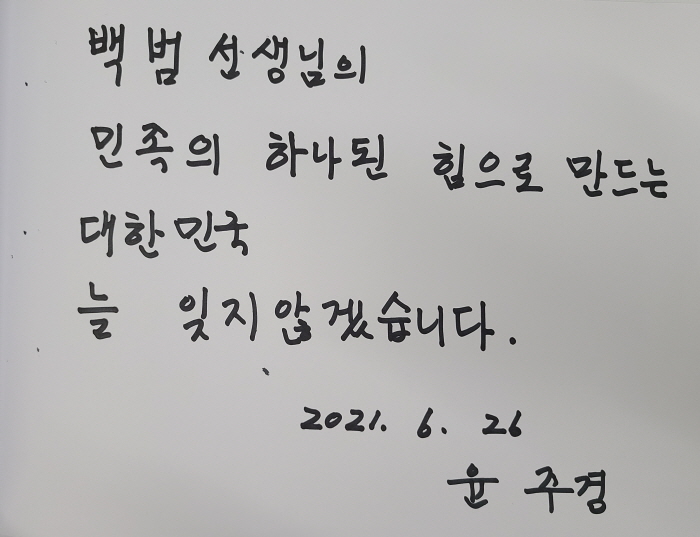 백범 선생님의
민족의 하나된 힘으로 만드는
대한민국
늘 잊지않겠습니다.
2021. 6. 26
윤 주경